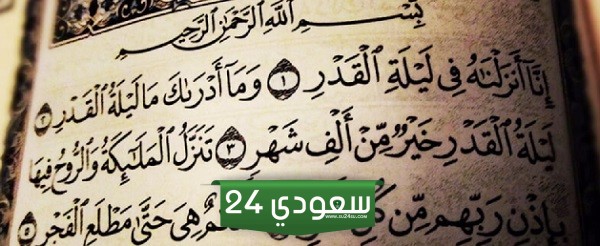 بِسْمِ اللَّهِ الرَّحْمَٰنِ الرَّحِيمِ
إِنَّآ أَنزَلْنَٰهُ فِى لَيْلَةِ ٱلْقَدْرِ ١ وَمَآ أَدْرَىٰكَ مَا لَيْلَةُ ٱلْقَدْرِ ٢
لَيْلَةُ ٱلْقَدْرِ خَيْرٌ مِّنْ أَلْفِ شَهْرٍ ٣ تَنَزَّلُ ٱلْمَلَٰٓئِكَةُ وَٱلرُّوحُ فِيهَا
بِإِذْنِ رَبِّهِم مِّن كُلِّ هِىَ حَتَّىٰ مَطْلَعِ ٱلْفَجْرِ ٥
سعودي 24